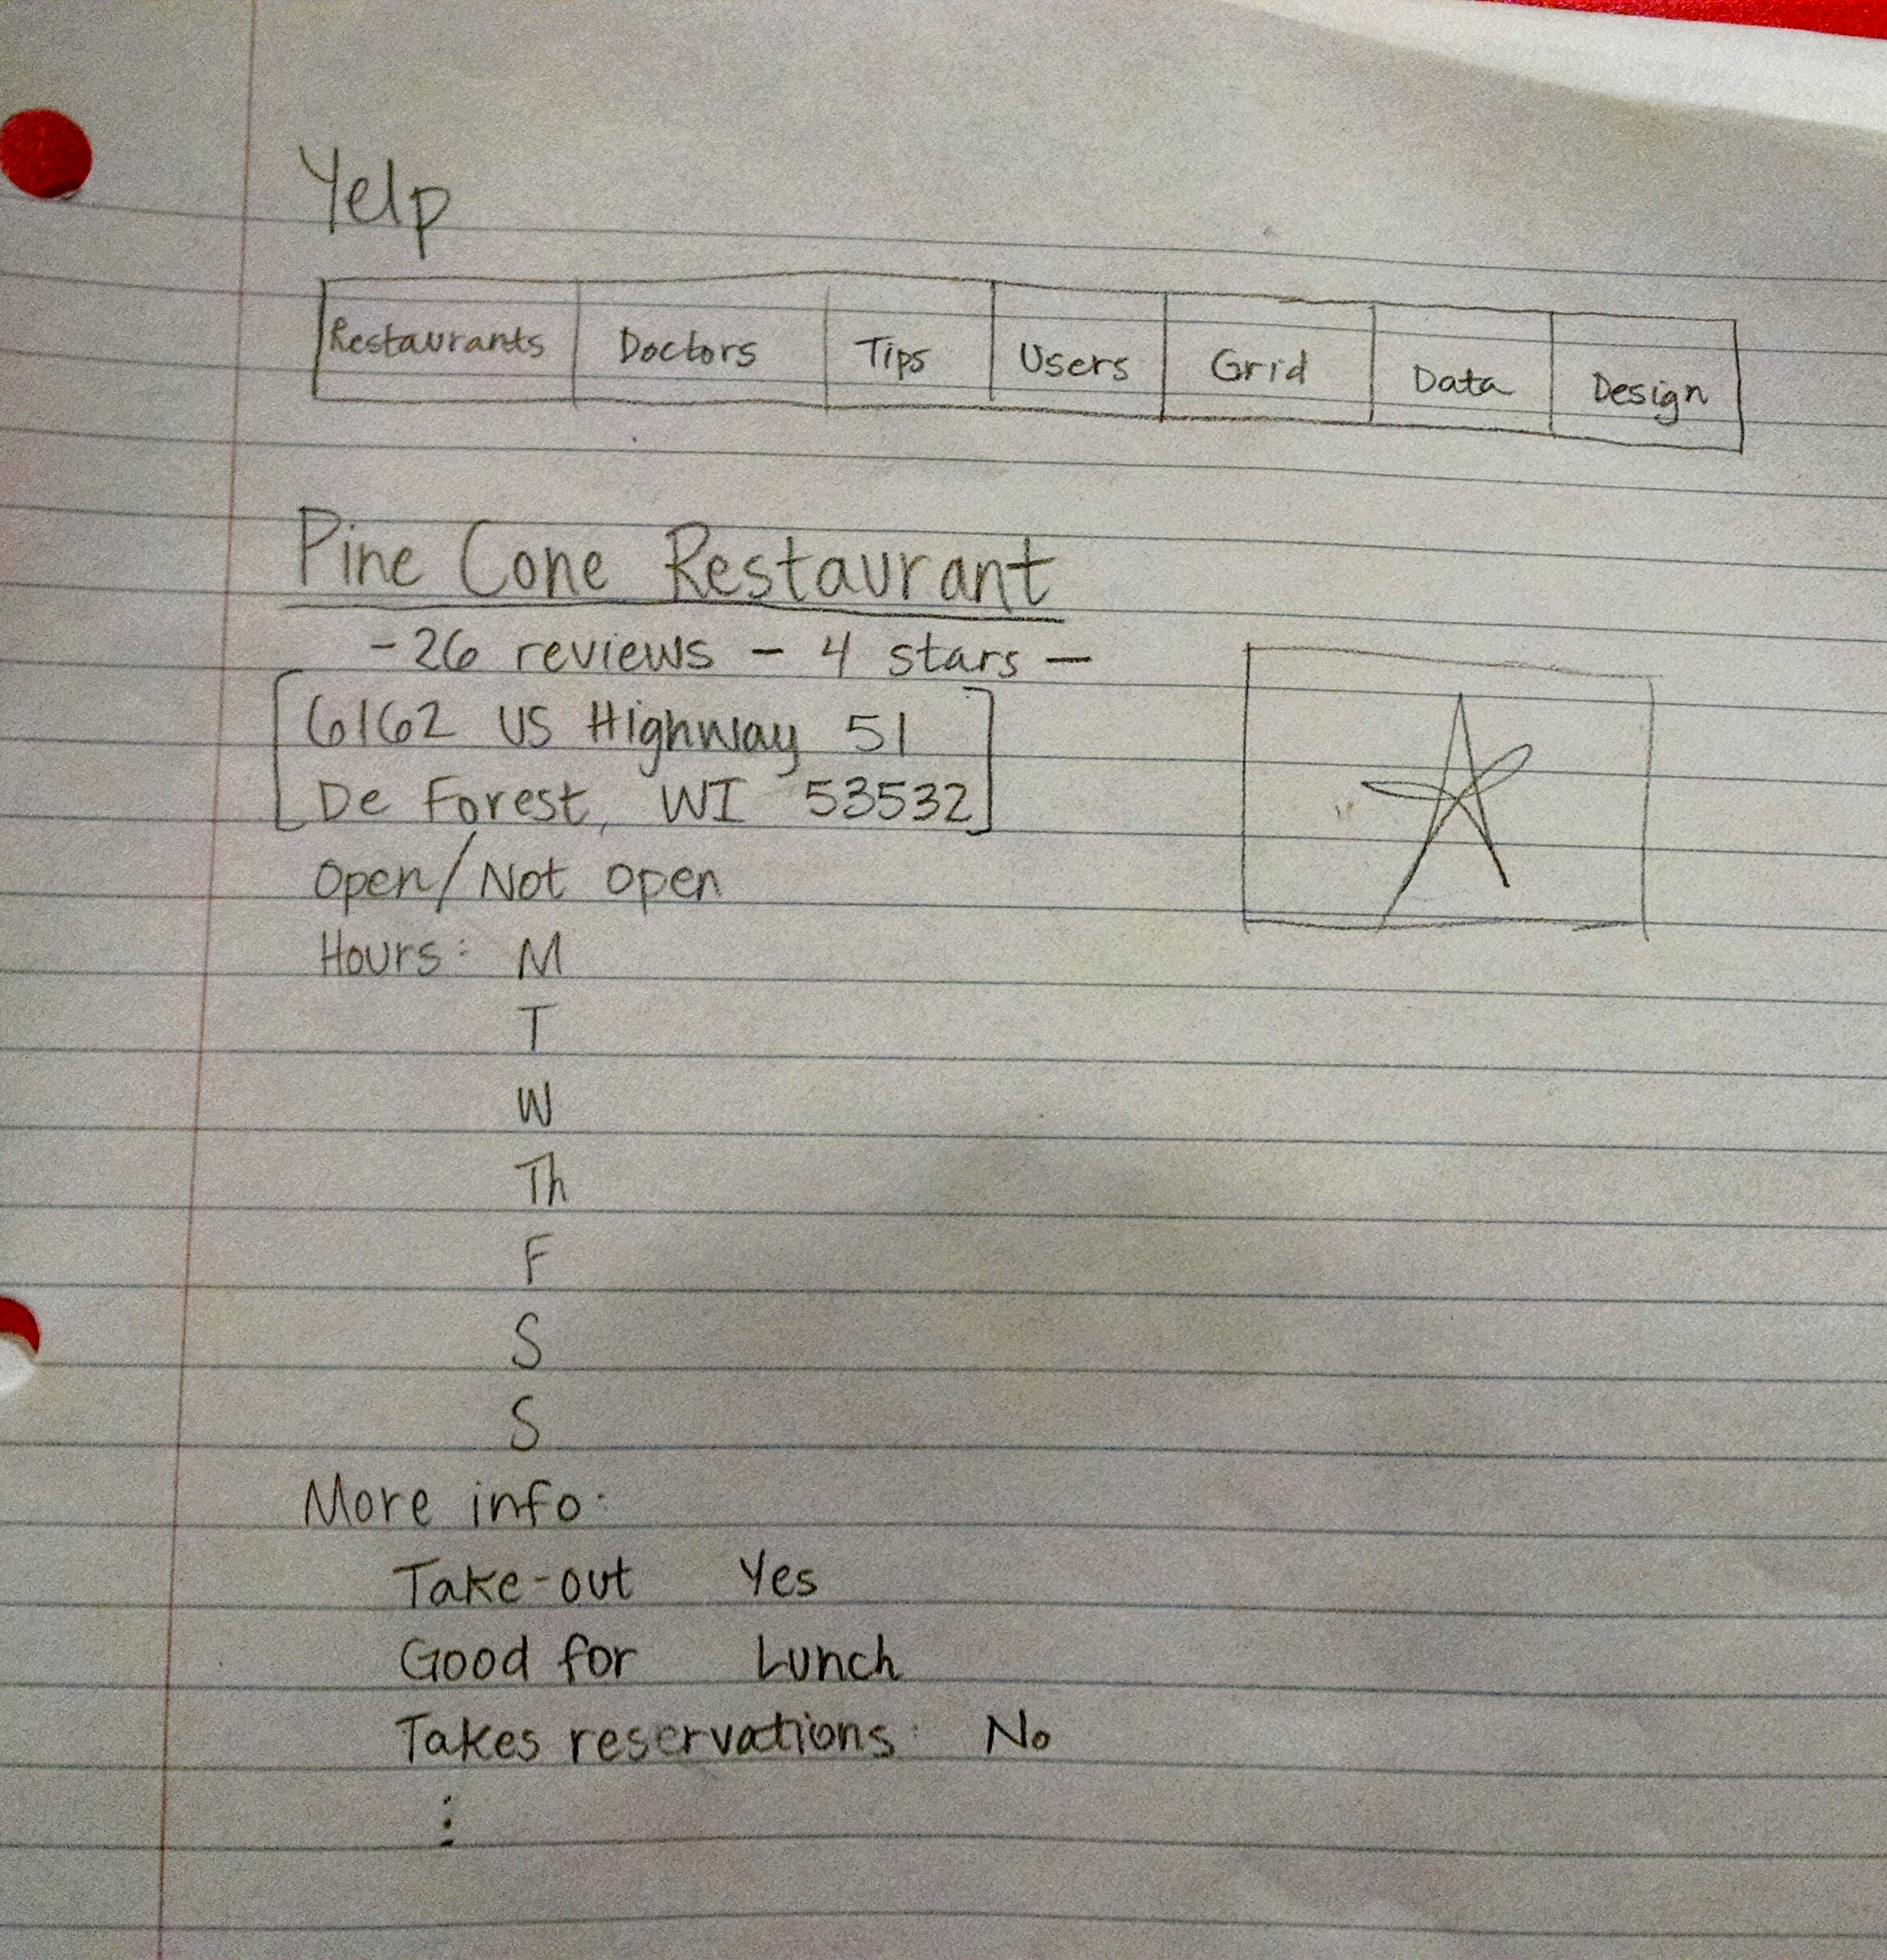 Yelp
Restaurants Doctors Tips Users Grid Data Design
Pine Cone Restaurant
- 26 reviews - 4 stars -
[6162 US Highway 51
De Forest, WI 53532]
Open/Not open
Hours: M
T
W
Th
F
S
S
More info:
Take-out Yes
Good for Lunch
Takes reservations: No
⋮